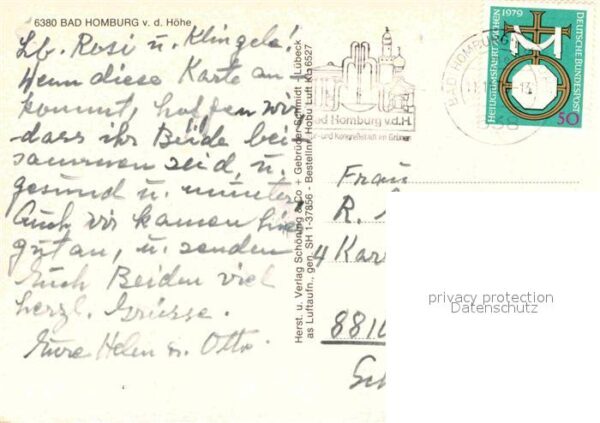 6380 BAD HOMBURG v. d. Höhe
Lb. Rosi u. Klingele!
Wenn diese Karte an-
kommt, hoffen wir
dass ihr Beide bei-
sammen seid, u.
gesund u. munter.
Auch wir kamen hier
gut an, u. senden
Euch Beiden viel
herzl. Grüsse.
Eure Helen u. Otto.
Herst. u. Verlag Schöning & Co + Gebrüder Schmidt - Lübeck
as Luftaufn., gen. SH 1-37856 - Bestellnr. Hobu Luft Ka 6527
Bad Homburg v.d.H.
und Kongreßstadt im Grünen
BAD HOMBURG
1979
DEUTSCHE BUNDESPOST
50
Frau
R.
4 Kar
8810
privacy protection
Datenschutz